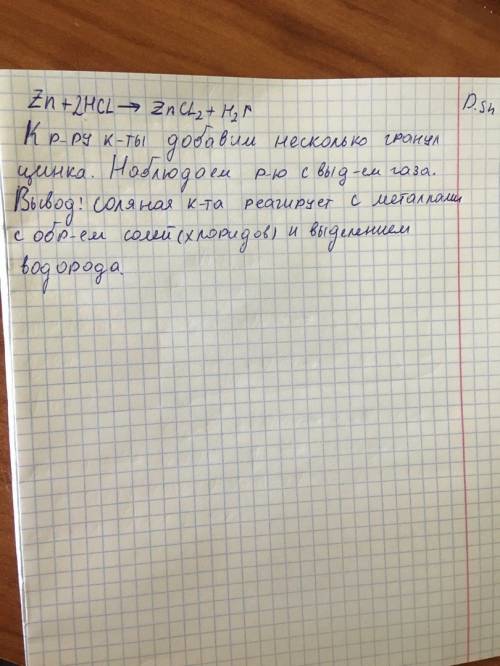 Zn + 2HCl → ZnCl₂ + H₂↑
К р-ру к-ты добавим несколько гранул
цинка. Наблюдаем р-ю с выд-ем газа.
Вывод: соляная к-та реагирует с металлами
с обр-ем солей (хлоридов) и выделением
водорода.
D.Sh